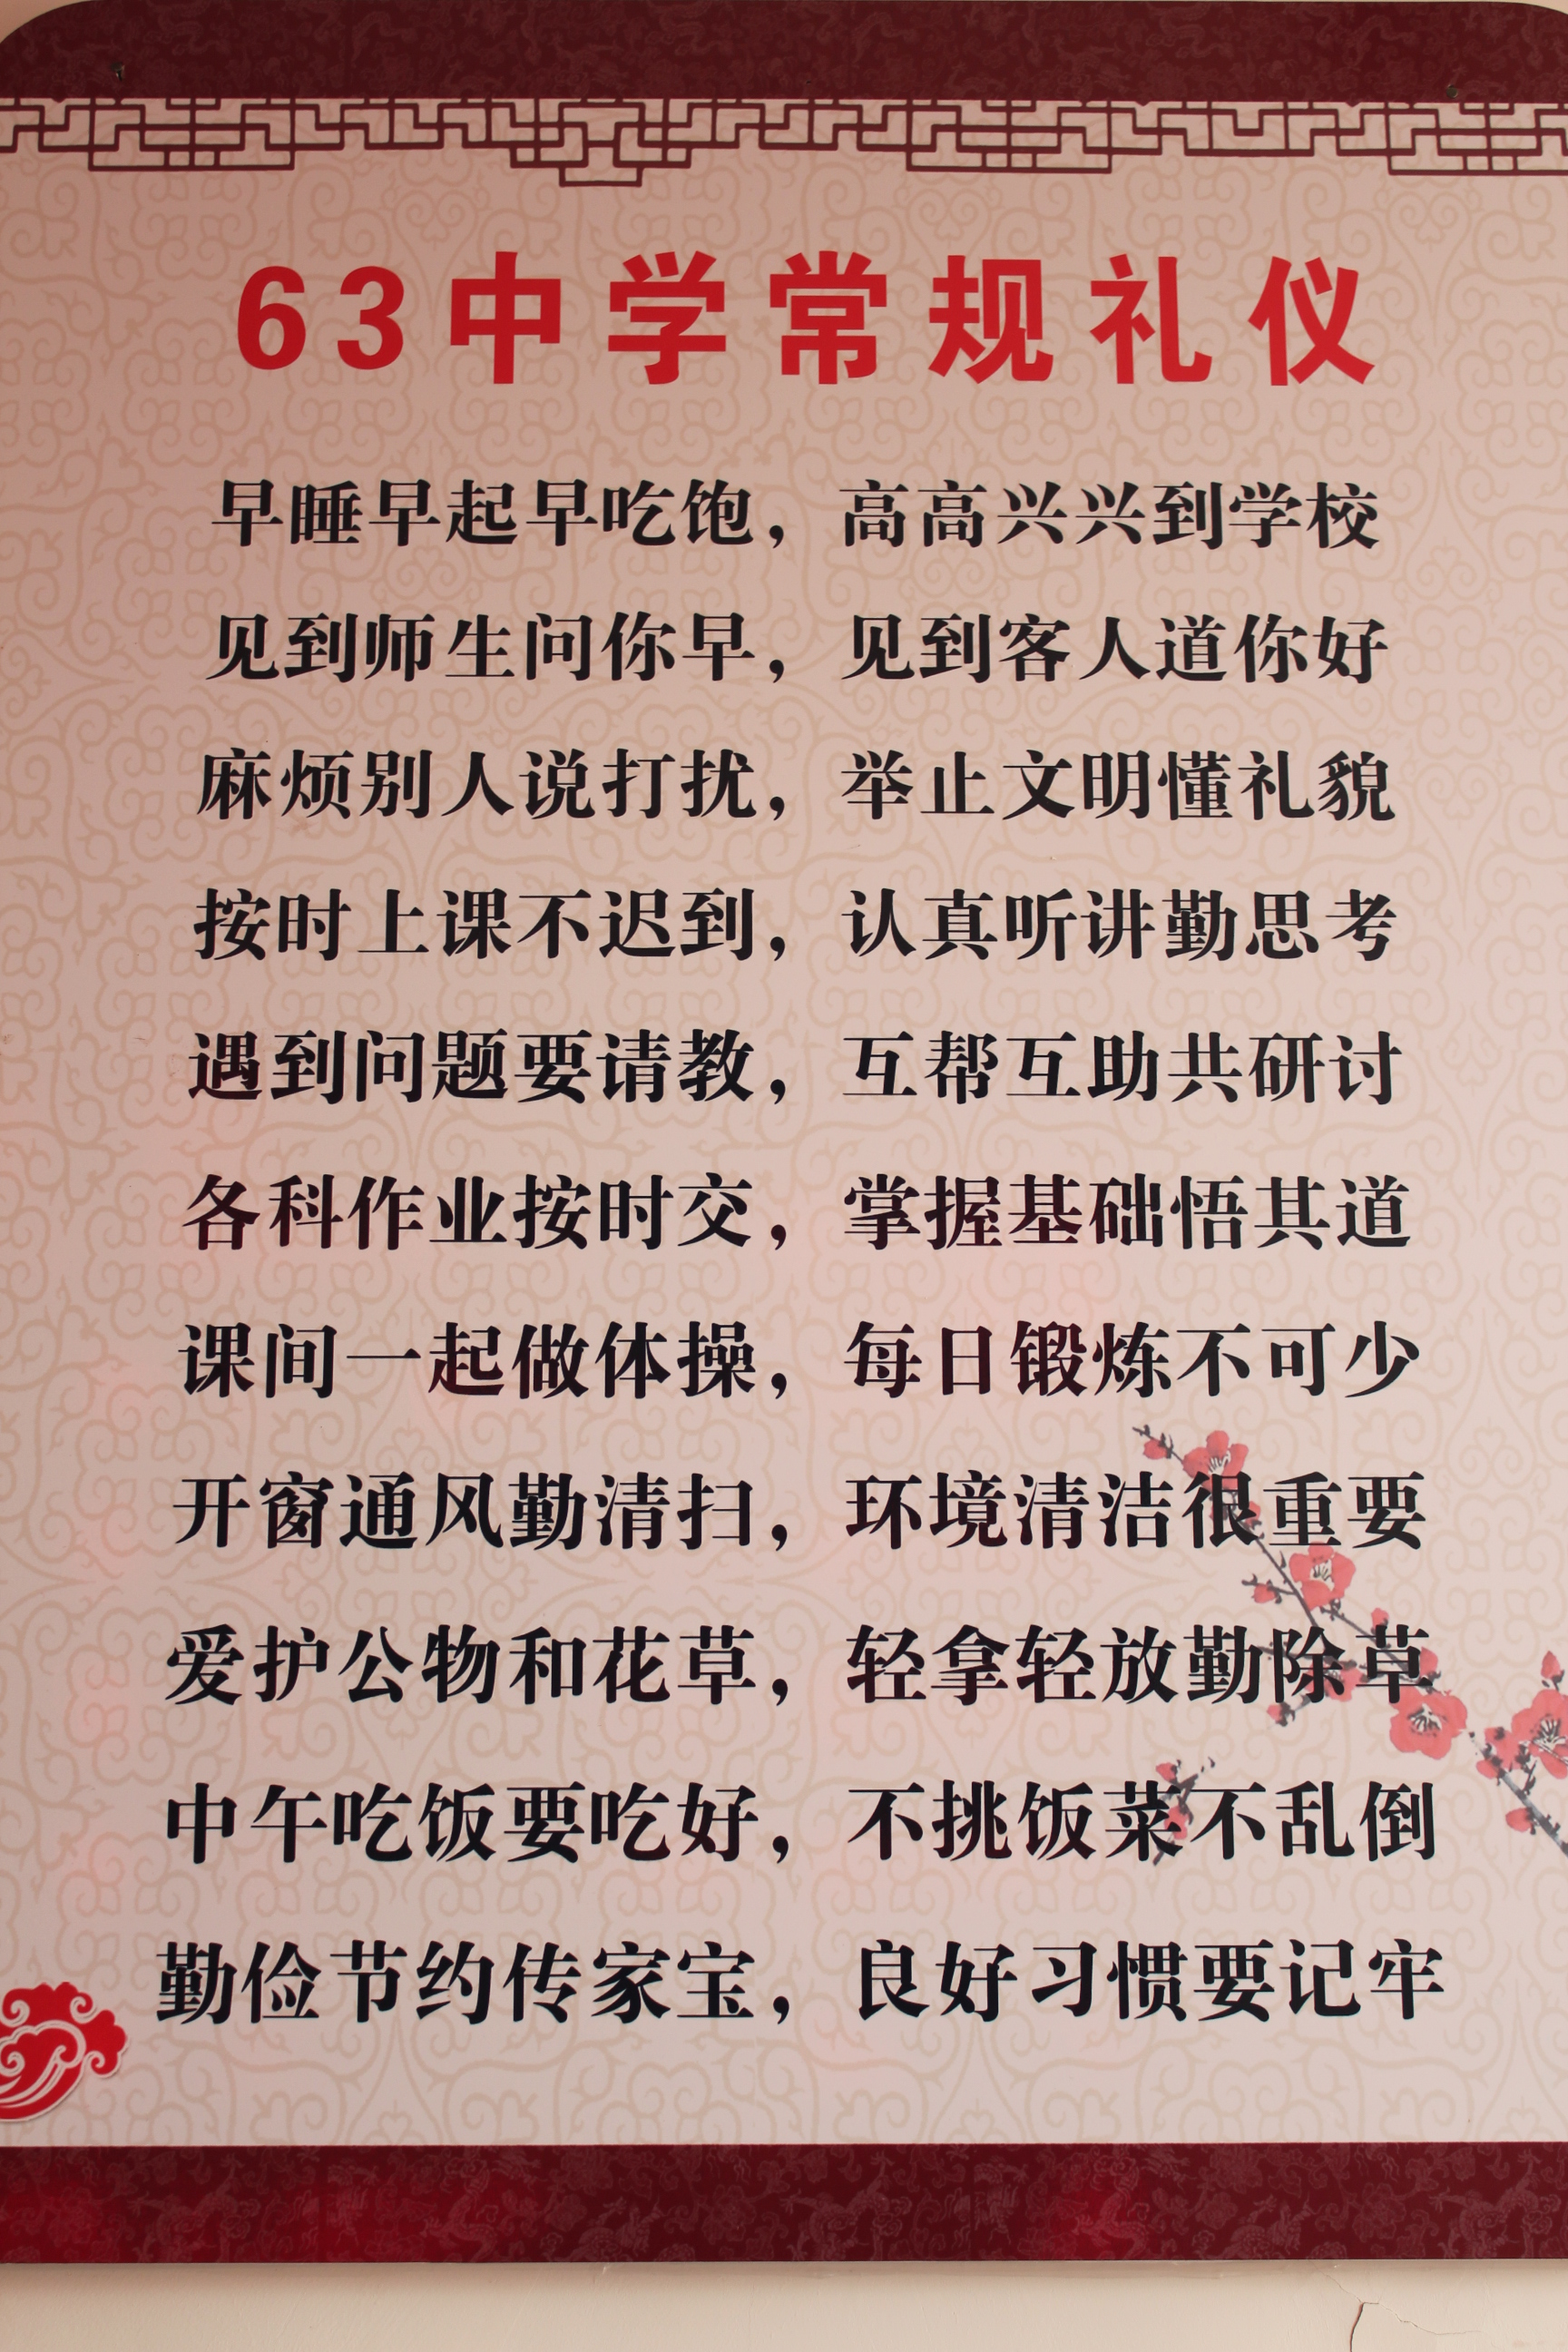 63中学常规礼仪
早睡早起早吃饱，高高兴兴到学校
见到师生问你早，见到客人道你好
麻烦别人说打扰，举止文明懂礼貌
按时上课不迟到，认真听讲勤思考
遇到问题要请教，互帮互助共研讨
各科作业按时交，掌握基础悟其道
课间一起做体操，每日锻炼不可少
开窗通风勤清扫，环境清洁很重要
爱护公物和花草，轻拿轻放勤除草
中午吃饭要吃好，不挑饭菜不乱倒
勤俭节约传家宝，良好习惯要记牢